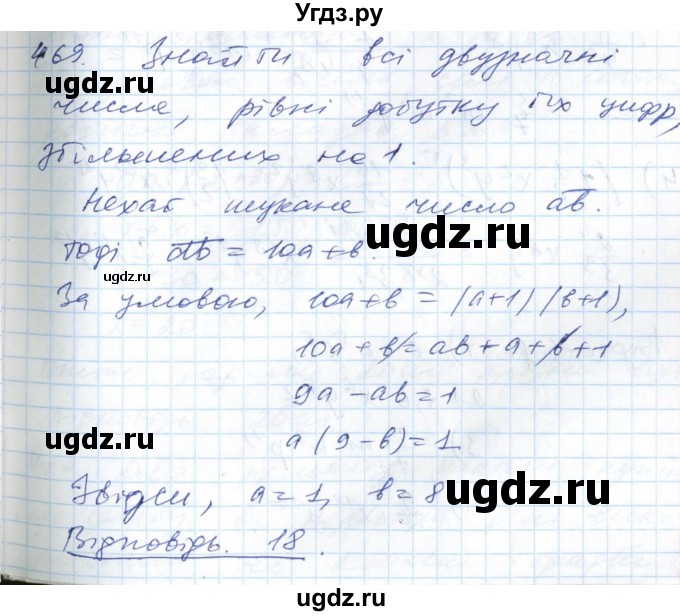 Угдз.ру
469. Знайти всі двузначні
числа, рівні добутку їх цифр,
збільшених на 1.
Нехай шукане число ab.
Тоді ab = 10a+b.
За умовою, 10a+b = (a+1)(b+1),
10a+b=ab+a+b+1
9a-ab=1
a(9-b)=1
Звідси, a=1, b=8
Відповідь. 18.
ugdz.ru
ugdz.ru
ugdz.ru
ugdz.ru
ugdz.ru
ugdz.ru
ugdz.ru